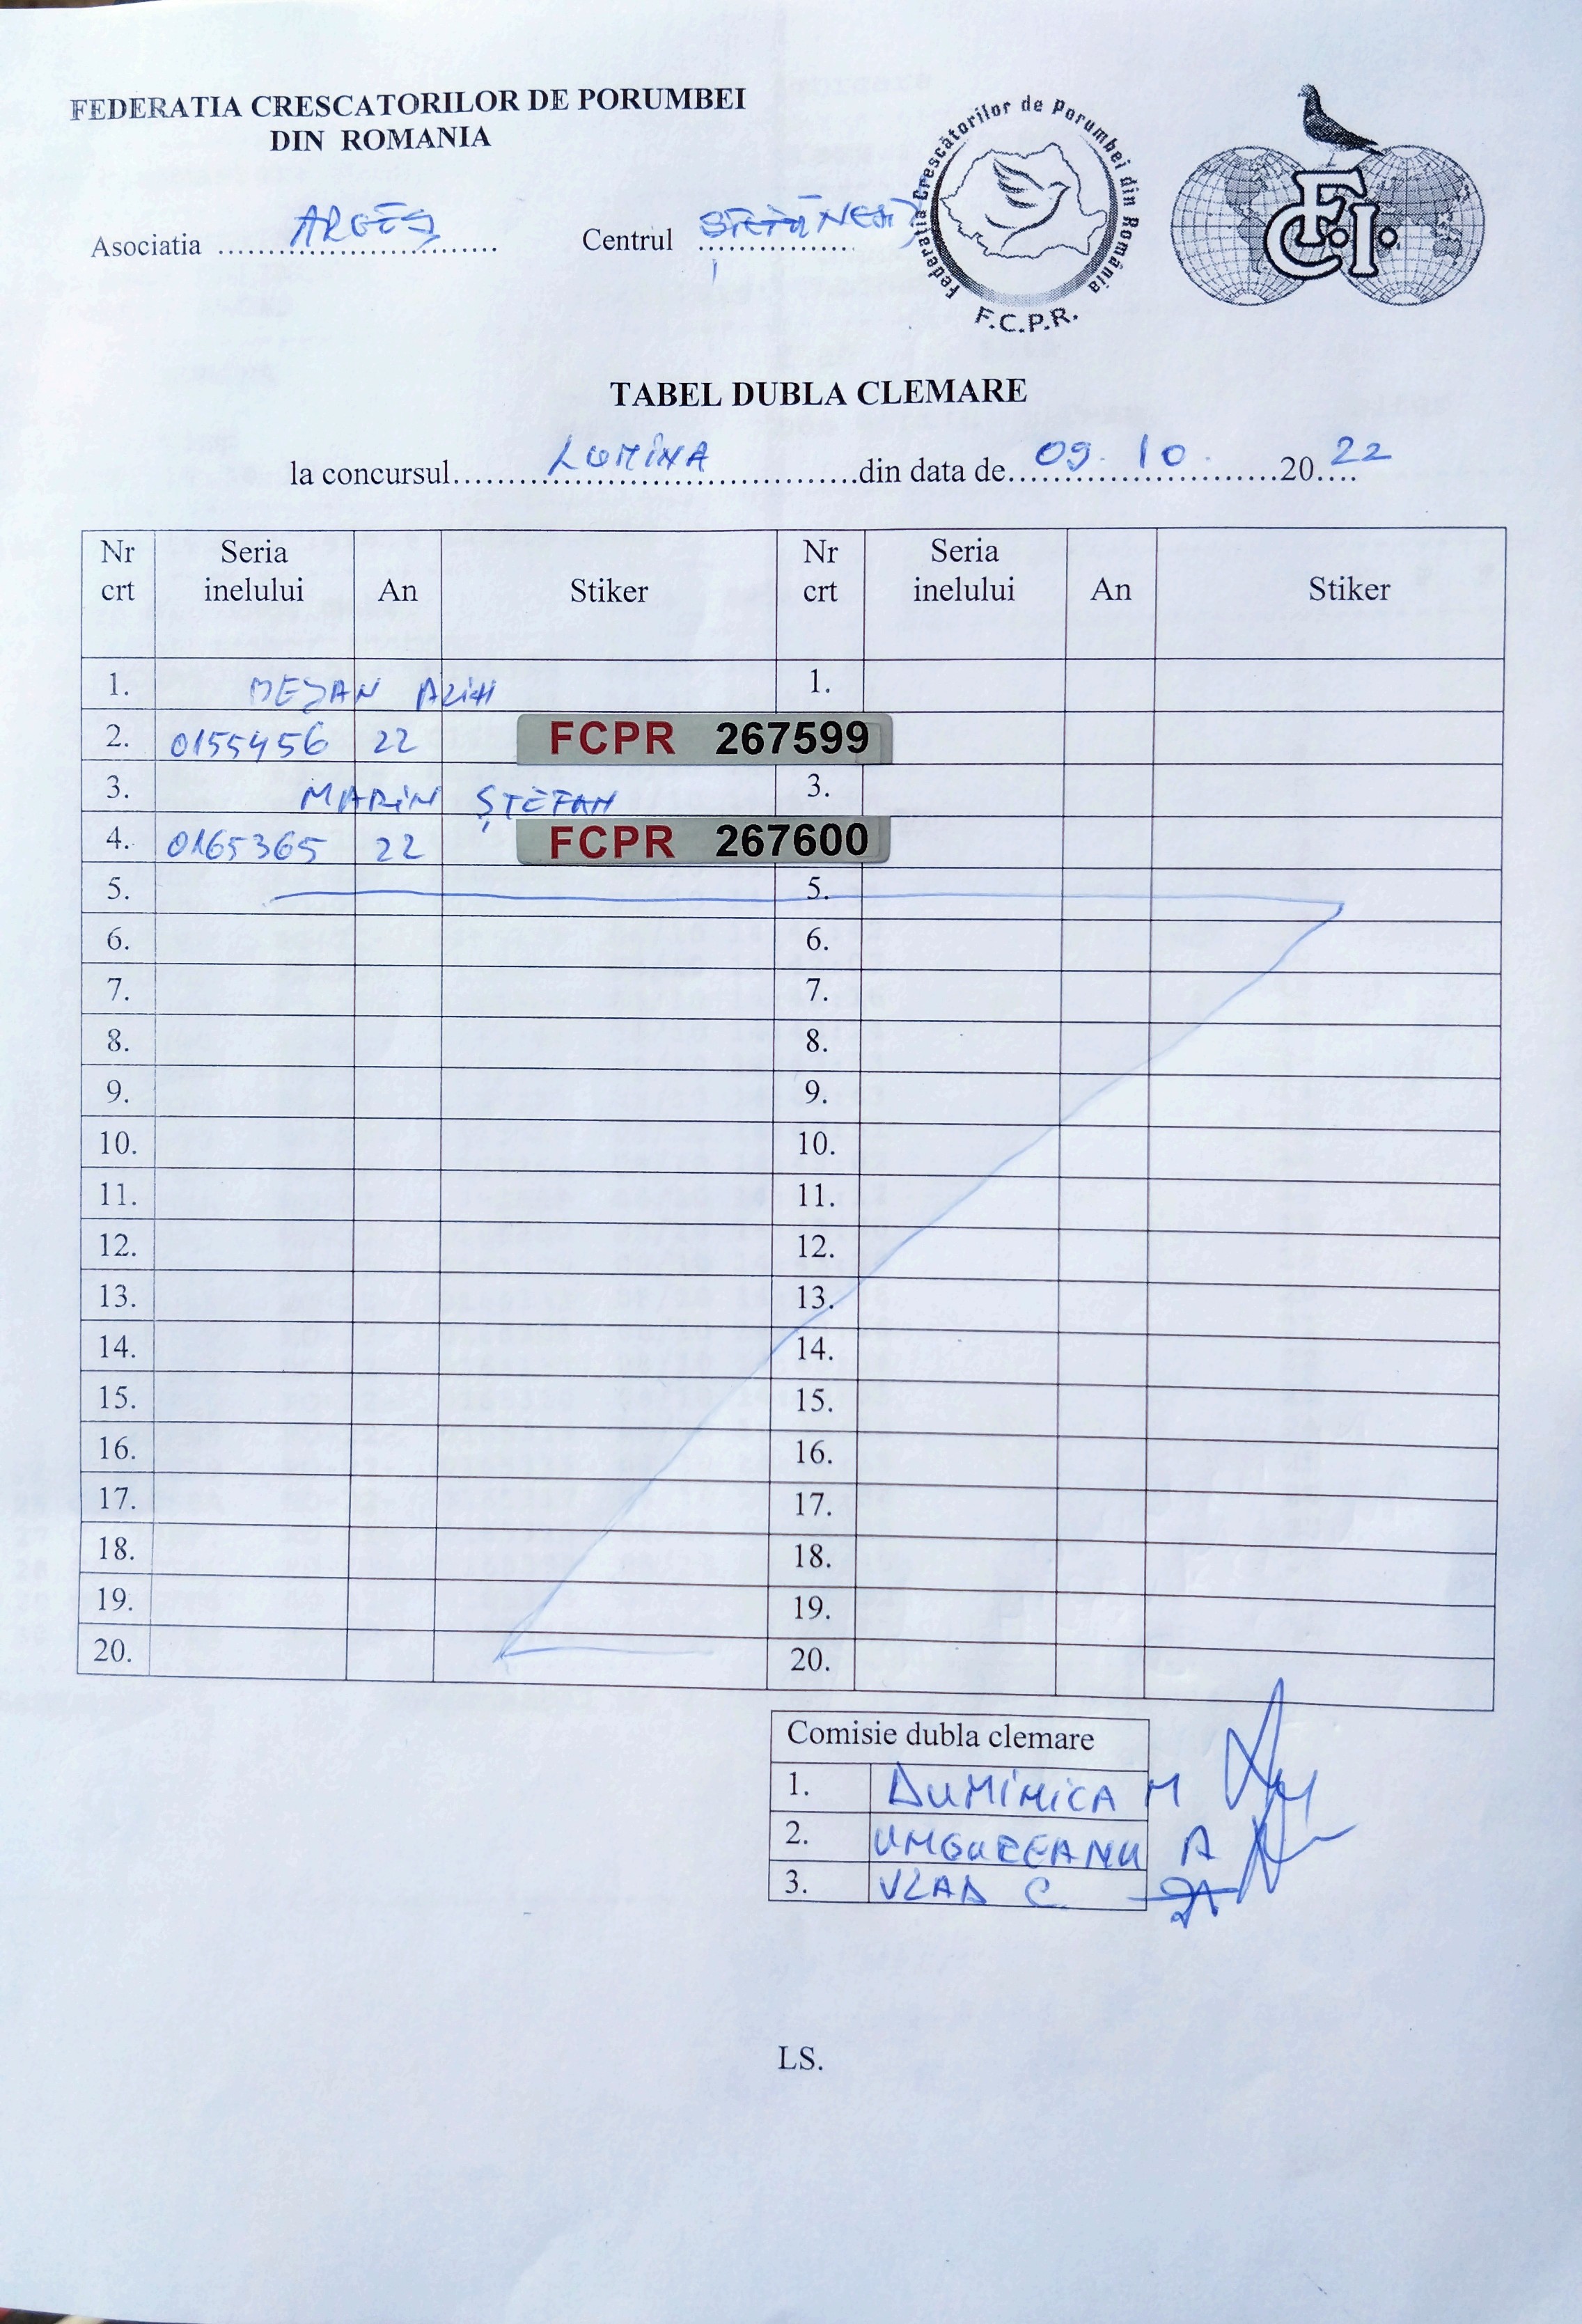 FEDERATIA CRESCATORILOR DE PORUMBEI
DIN ROMANIA
Federatia Crescătorilor de Porumbei din România
F.C.P.R.
F.C.I.
Asociatia ARGEȘ Centrul ȘTEFĂNEȘTI
TABEL DUBLA CLEMARE
la concursul LUMINA din data de 09.10. 20 22
Nr crt Seria inelului An Stiker Nr crt Seria inelului An Stiker
1. DEJAN 1.
2. 0155456 22 FCPR 267599
3. MARIN ȘTEFAN 3.
4. 0165365 22 FCPR 267600
5. 5.
6. 6.
7. 7.
8. 8.
9. 9.
10. 10.
11. 11.
12. 12.
13. 13.
14. 14.
15. 15.
16. 16.
17. 17.
18. 18.
19. 19.
20. 20.
Comisie dubla clemare
1. DUMINICA M
2. UNGUREANU A
3. VLAD C
LS.